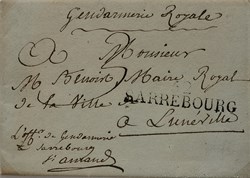 Gendarmerie Royale
A Monsieur
M Benoist Maire Royal
de la Ville de
SARREBOURG
a Luneville
L'off. de Gendarmerie
a Sarrebourg